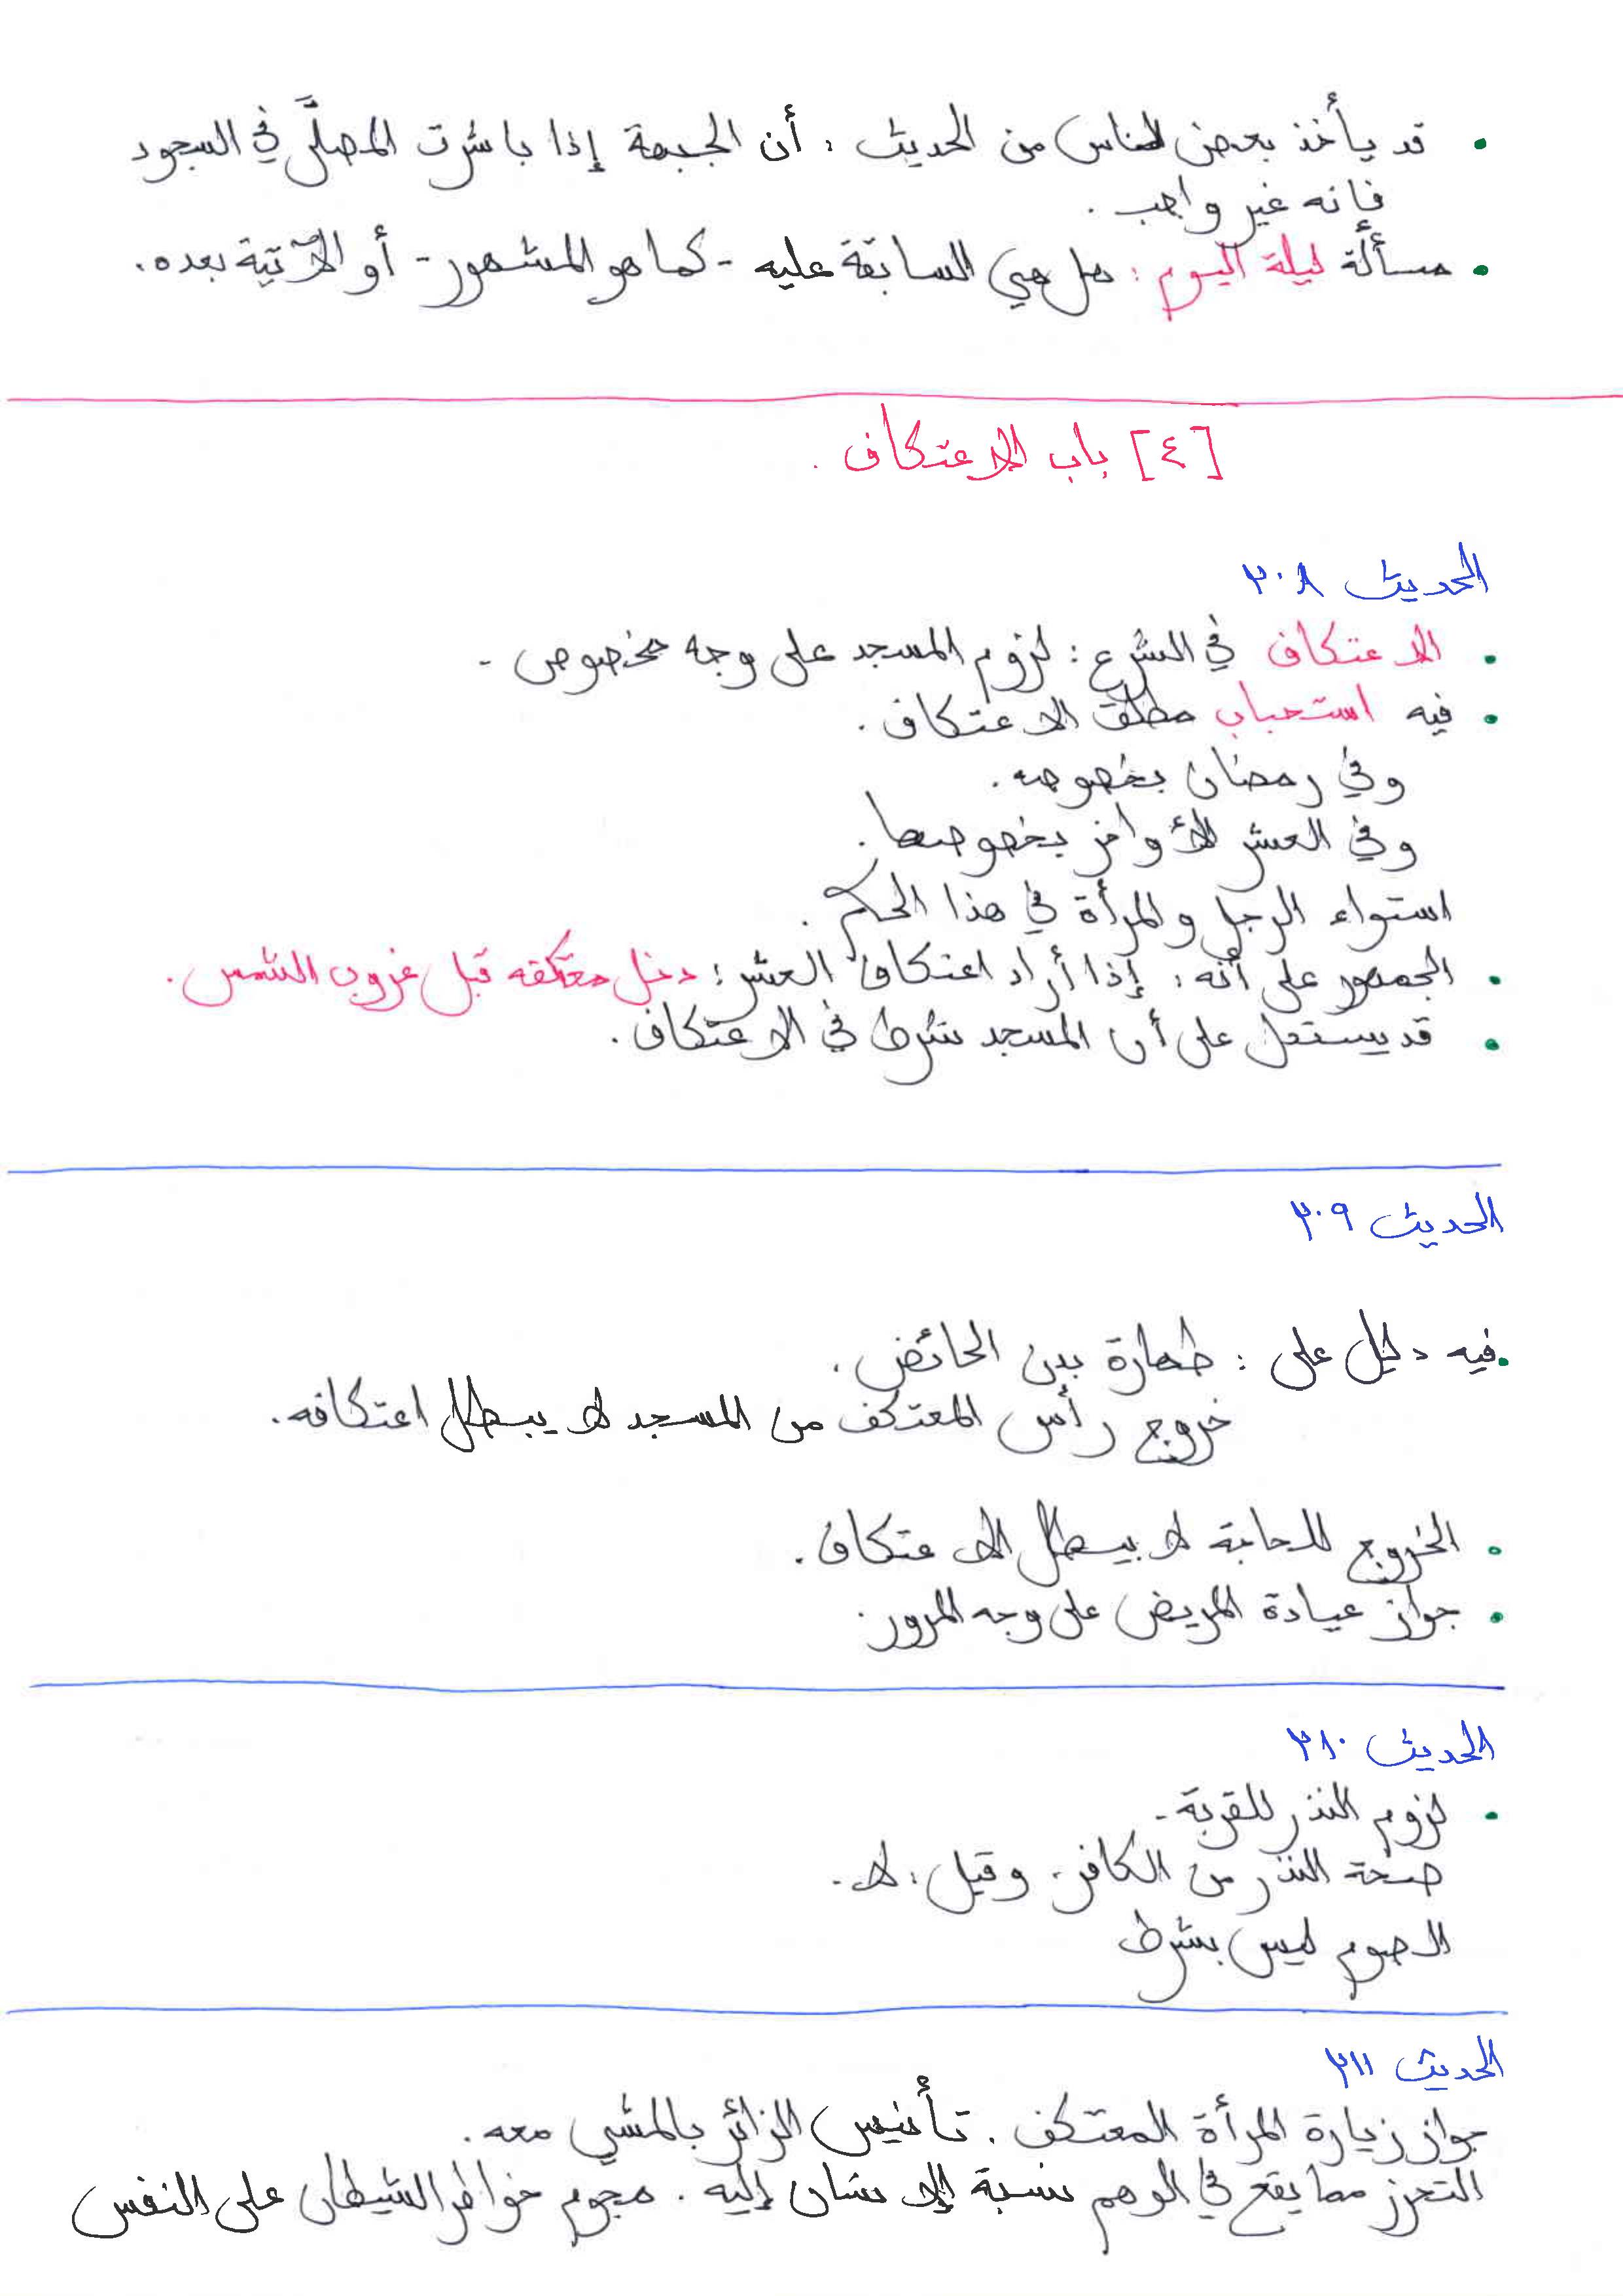 • قد يأخذ بعض الناس من الحديث : أن الجبهة إذا باشرت المصلَّى في السجود
فإنه غير واجب .
• مسألة ليلة اليوم : هل هي السابقة عليه - كما هو المشهور - أو الآتية بعده .
[٤] باب الاعتكاف .
الحديث ٢٠٨
• الاعتكاف في الشرع : لزوم المسجد على وجه مخصوص .
• فيه استحباب مطلق الاعتكاف .
وفي رمضان بخصوصه .
وفي العشر الأواخر بخصوصها .
استواء الرجل والمرأة في هذا الحكم .
• الجمهور على أنه : إذا أراد اعتكاف العشر : دخل معتكفه قبل غروب الشمس .
• قد يستدل على أن المسجد شرط في الاعتكاف .
الحديث ٢٠٩
• فيه دليل على : طهارة بدن الحائض .
خروج رأس المعتكف من المسجد لا يبطل اعتكافه .
• الخروج للحاجة لا يبطل الاعتكاف .
• جواز عيادة المريض على وجه المرور .
الحديث ٢١٠
• لزوم النذر للقربة .
صحة النذر من الكافر . وقيل : لا .
الصوم ليس بشرط
الحديث ٢١١
جواز زيارة المرأة المعتكف . تأنيس الزائر بالمشي معه .
التحرز مما يقع في الوهم نسبة الإنسان إليه . هجوم خواطر الشيطان على النفس